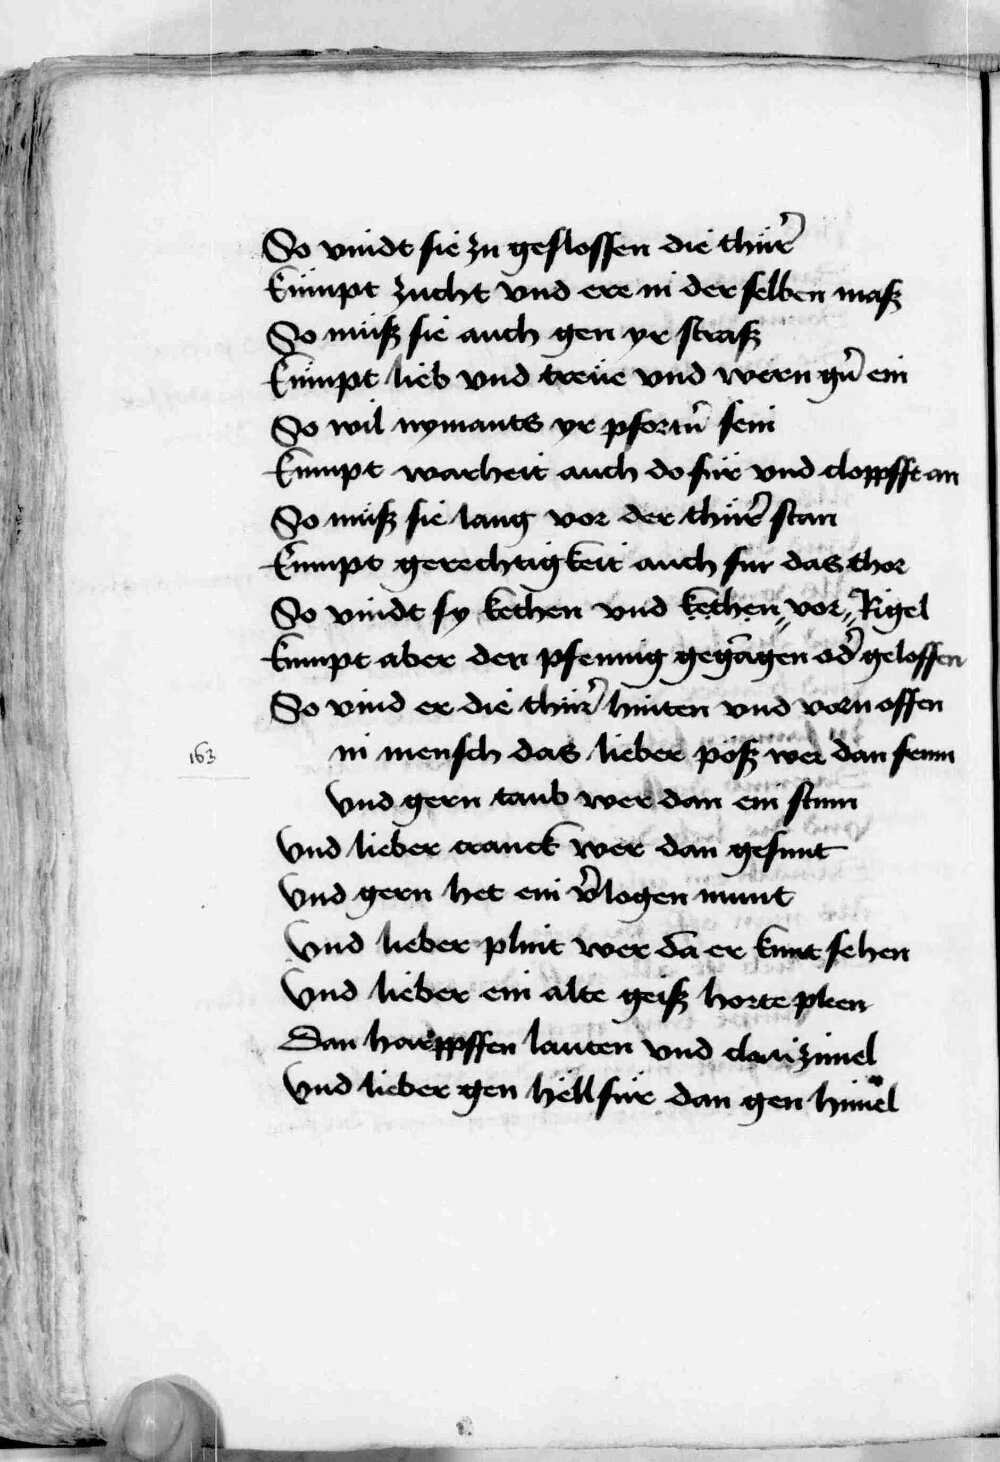 So vindt sie zu geslossen die thür̄
kümpt zucht vnd ere in der selben masz
So müsz sie auch gen yr strasz
kümpt lieb vnd treüe vnd wern gn̄ ein
So wil nymants yr pfortn̄ sein
kumpt warheit auch do für vnd cloppfft an
So müsz sie lang vor der thür̄ stan
kumpt gerechtigkeit auch fur das thor
So vindt sy kethen vnd kethen vor Rigel
kumpt aber der pfennig gegāgen od̄ geloffen
So vind er die thür̄ hinten vnd vorn offen
163 in mensch das lieber pösz wer dan frum
vnd gern taub wer dan ein stum
vnd lieber cranck wer dan gesunt
vnd gern het ein v̄logen munt
vnd lieber plint wer dā er kunt sehen
vnd lieber ein alte geisz horte plen
Dan harppffen lauten vnd clauizimel
vnd lieber gen hell für dan gen himel